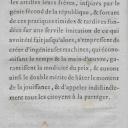 les artistes leurs frères, inspirés par le
génie fécond de la république, & fortant
de ces pratiques timides & tardives fini-
ront par une servile imitation de ce qui
avoient fait jusqu'alors, s'empressèrent de
créer d'ingénieuses machines, qui écono-
misent le temps & la main-d'œuvre, ga-
rantissent la modicité des prix, & auront
ainsi le double mérite de hâter le moment
de la jouissance, & d'appeler indistincte-
ment tous les citoyens à la partager.